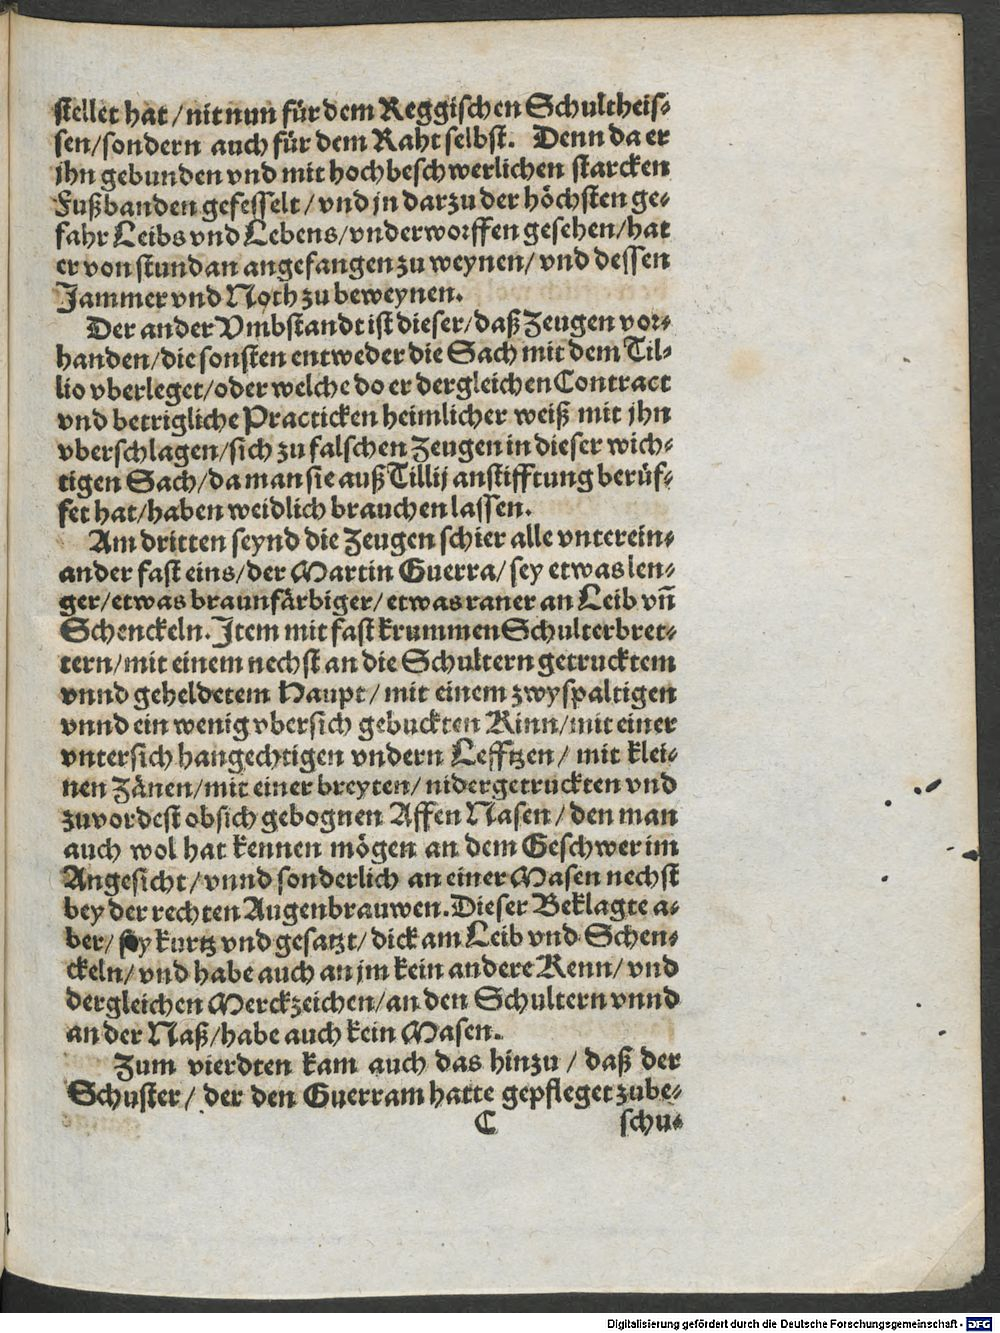 stellet hat / nit nun für dem Reggischen Schultheis⸗
sen/sondern auch für dem Raht selbst. Denn da er
jhn gebunden vnd mit hochbeschwerlichen starcken
Fußbanden gefesselt / vnd jn darzu der höchsten ge⸗
fahr Leibs vnd Lebens/vnderworffen gesehen/hat
er von stund an angefangen zu weynen/ vnd dessen
Jammer vnd Noth zu beweynen.
Der ander Vmbstandt ist dieser/daß Zeugen vor⸗
handen/die sonsten entweder die Sach mit dem Til⸗
lio vberleget/oder welche do er dergleichen Contract
vnd betrigliche Practicken heimlicher weiß mit jhn
vberschlagen/sich zu falschen Zeugen in dieser wich⸗
tigen Sach/da man sie auß Tillij anstifftung berüf⸗
fet hat/haben weidlich brauchen lassen.
Am dritten seynd die Zeugen schier alle vnterein⸗
ander fast eins/der Martin Guerra/ sey etwas len⸗
ger/etwas braunfärbiger/ etwas raner an Leib vñ
Schenckeln. Jtem mit fast krummen Schulterbret⸗
tern/mit einem nechst an die Schultern getrucktem
vnnd geheldetem Haupt/ mit einem zwyspaltigen
vnnd ein wenig vbersich gebuckten Kinn/mit einer
vntersich hangechtigen vndern Lefftzen/ mit klei⸗
nen Zänen/mit einer breyten/ nidergetruckten vnd
zuvordest obsich gebognen Affen Nasen/ den man
auch wol hat kennen mögen an dem Geschwer im
Angesicht/ vnnd sonderlich an einer Masen nechst
bey der rechten Augenbrauwen. Dieser Beklagte a⸗
ber/ sey kurtz vnd gesatzt/ dick am Leib vnd Schen⸗
ckeln/ vnd habe auch an jm kein andere Kenn/ vnd
dergleichen Merckzeichen/an den Schultern vnnd
an der Naß/habe auch kein Masen.
Zum vierdten kam auch das hinzu / daß der
Schuster/ der den Guerram hatte gepfleget zu be⸗
C schu⸗
Digitalisierung gefördert durch die Deutsche Forschungsgemeinschaft - DFG